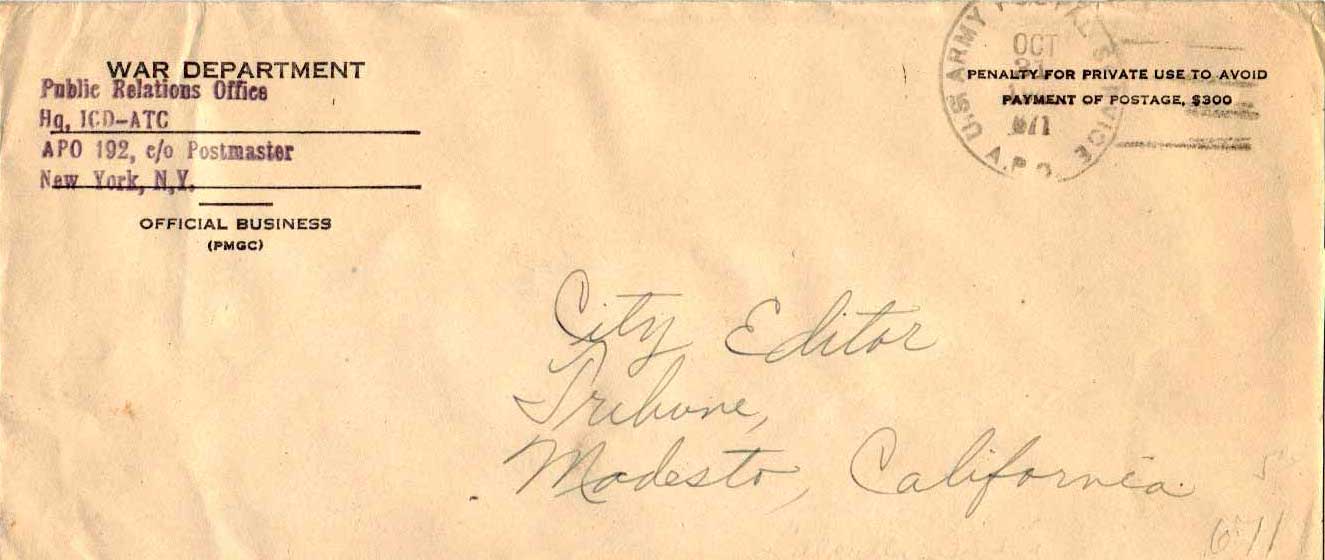 WAR DEPARTMENT
Public Relations Office
Hq, ICD-ATC
APO 192, c/o Postmaster
New York, N.Y.
OFFICIAL BUSINESS
(PMGC)
U.S. ARMY POSTAL SERVICE
A.P.O.
OCT
PENALTY FOR PRIVATE USE TO AVOID
PAYMENT OF POSTAGE, $300
City Editor
Tribune,
Modesto, California